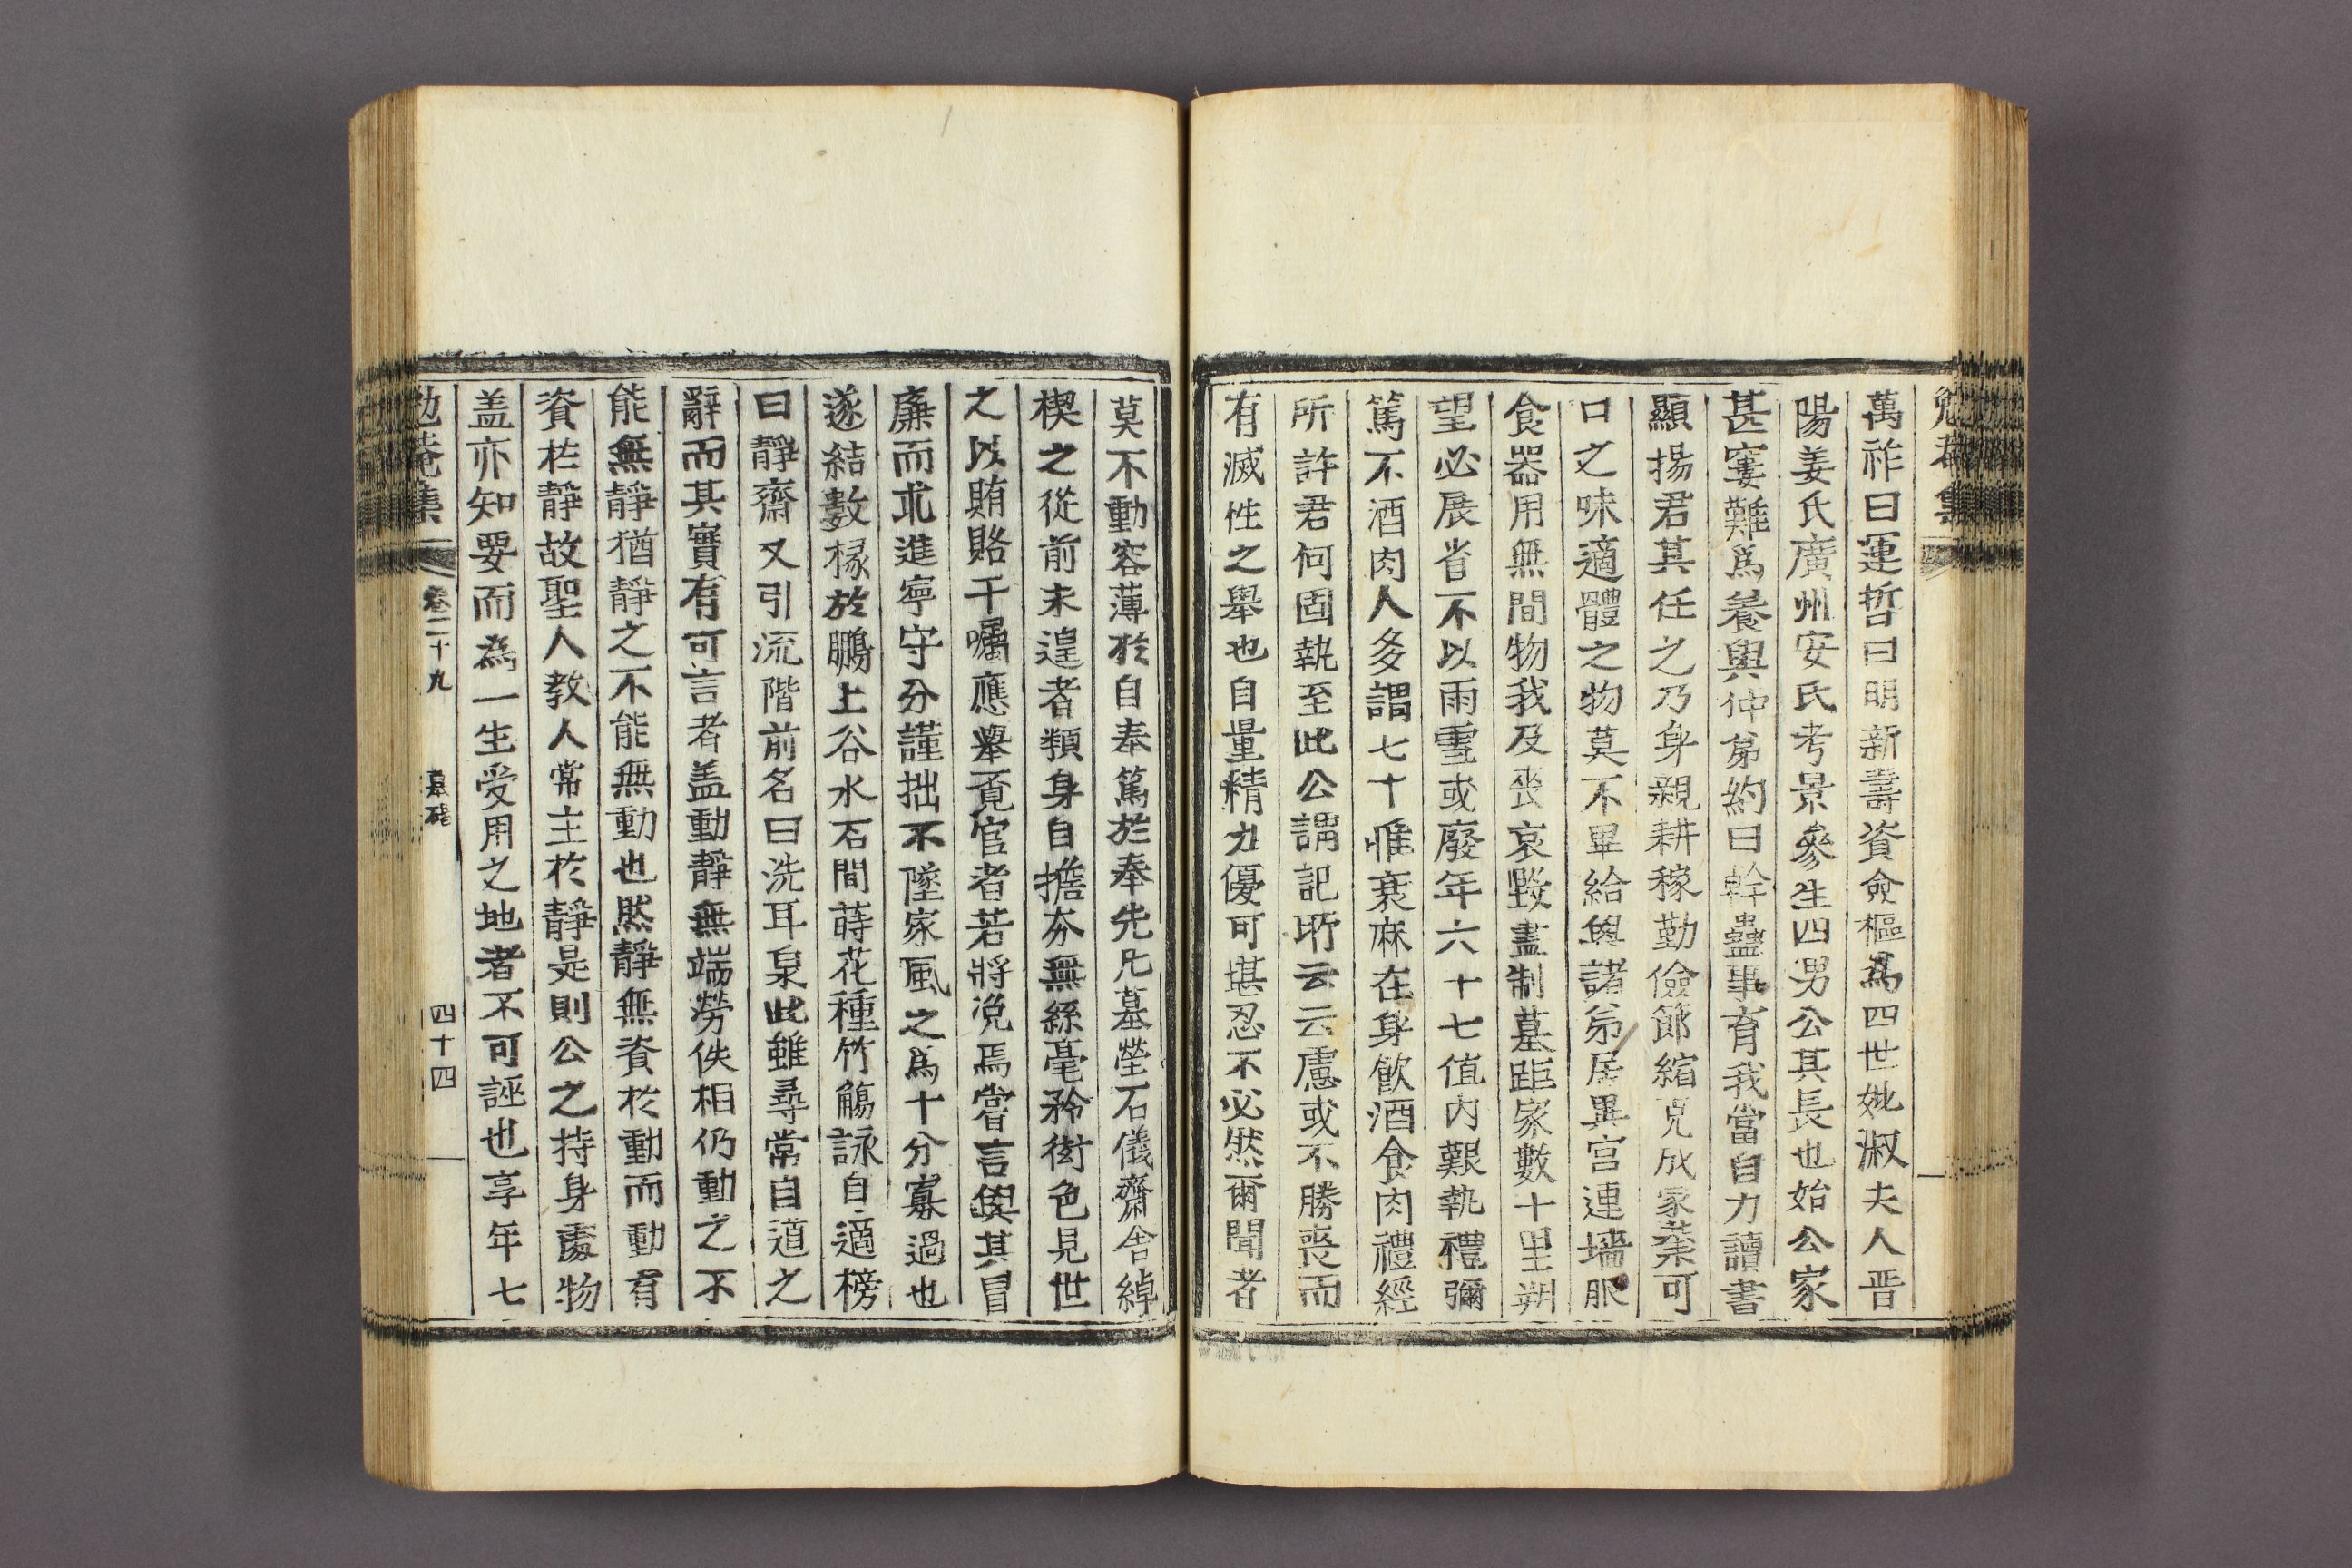 勉菴集
萬祚曰運哲曰明新壽資僉樞為四世妣淑夫人晋
陽姜氏廣州安氏考景參生四男公其長也始公家
甚窶難爲養與仲弟約曰幹蠱事育我當自力讀書
顯揚君其任之乃身親耕稼勤儉節縮克成家業可
口之味適體之物莫不畢給與諸弟居異宮連墻服
食器用無間物我及喪哀毀盡制墓距家數十里朔
望必展省不以雨雪或廢年六十七值内艱執禮彌
篤不酒肉人多謂七十惟衰麻在身飮酒食肉禮經
所許君何固執至此公謂記所云云慮或不勝喪而
有滅性之擧也自量精力優可堪忍不必然爾聞者
莫不動容薄於自奉篤於奉先凡墓塋石儀齋舍綽
楔之從前未遑者類身自擔夯無絲毫矜衒色見世
之以賄賂干囑應擧覔官者若將浼焉甞言與其冒
廉而求進寧守分謹拙不墜家風之爲十分寡過也
遂結數椽於鵩上谷水石間蒔花種竹觴詠自適榜
曰靜齋又引流階前名曰洗耳泉此雖尋常自道之
辭而其實有可言者盖動靜無端勞佚相仍動之不
能無靜猶靜之不能無動也然靜無資於動而動有
資於靜故聖人教人常主於靜是則公之持身處物
盖亦知要而為一生受用之地者不可誣也享年七
勉菴集 卷二十九 墓碣 四十四